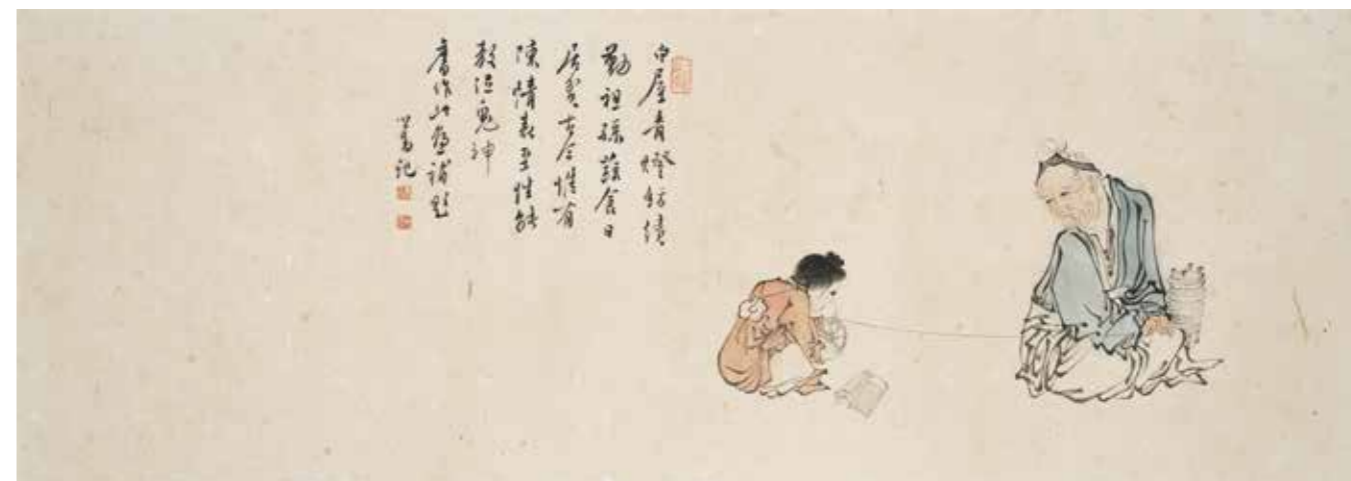 白屋青燈紡績
勤祖孫蔬食日
居貧古今惟有
陳情表至性能
教泣鬼神
舊作此補題
心畬記